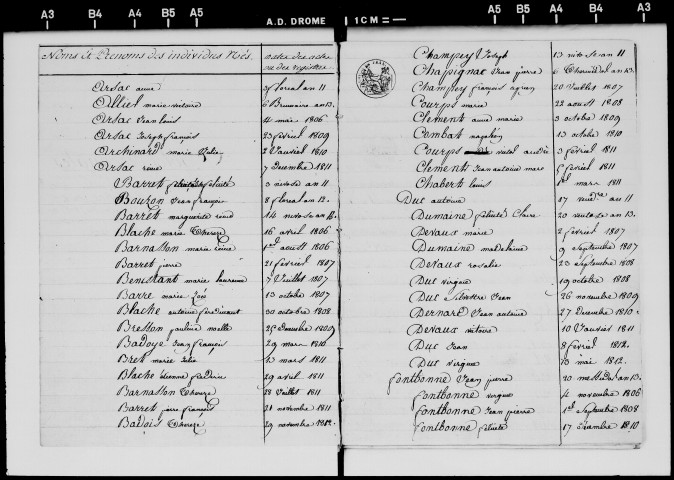 A3 B4 A4 B5 A5 A.D. DROME 1 CM = A5 B5 A4 B4 A3
Noms & Prenoms des individus Nés.
Arsac anne 3 floreal an 11
Allier marie victoire 6 Brumaire an 13.
Arsac Jean louis 4 mai 1806
Arsac Joseph françois 23 fevriel 1809
Archinard marie 2 Janvriel 1810
Arsac reine 7 Decembre 1811
Barret felicité 3 nivose an 11
Bouzon Jean françois 8 floreal an 12.
Barret marguerite 14 nivose an 14.
Blache marie Therese 16 avril 1806
Barnasson marie reine 1er aoust 1806
Barret pierre 21 fevriel 1807
Benestant marie laurence 7 Juillet 1807
Barre marie 13 octobre 1807
Blache antoine ferdinant 30 octobre 1808
Bresson pauline 25 Decembre 1809
Badoye Jean françois 29 mars 1810
Bret marie Julie 1 mars 1811
Blache etienne frederic 29 avril 1811
Barnasson Therese 28 Juillet 1811
Barret piere françois 21 novembre 1811
Badois Therese 29 novembre 1812.
Champey Joseph 13 nivose an 11
Chapignac Jean pierre 6 Thermidal an 13.
Champey françois 20 Juillet 1807
Courps marie 22 aoust 1808
Clement anne marie 3 octobre 1809
Combat 13 octobre 1810
Courps vital andre 3 fevriel 1811
Clement Jean antoine marc 5 fevriel 1811
Chabert louis 1er mars 1811
Duc antoine 17 an 11
Dumaine felicité Claire 20 nivose an 13.
Devaux marie 2 fevriel 1807
Dumaine madelaine 9 Septembre 1807
Devaux rosalie 23 septembre 1808
Duc virginie 19 octobre 1808
Duc Silvestre Jean 26 novembre 1809
Bernard Jean antoine 27 Decembre 1810
Devaux victoire 10 Janvriel 1811
Duc Jean 8 fevriel 1812.
Duc virginie 10 mai 1812.
fontbonne Jean pierre 20 messidor an 13.
fontbonne virginie 4 novembre 1806
fontbonne Jean pierre 1er Septembre 1808
fontbonne felicité 17 decembre 1810